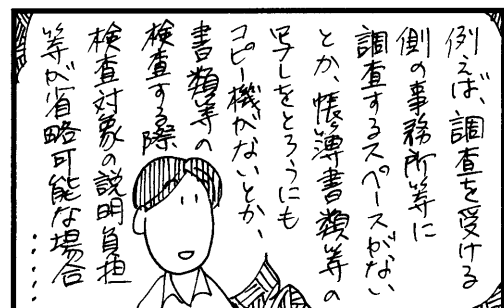 例えば、調査を受ける
側の事務所等に
調査するスペースがない
とか、帳簿書類等の
写しをとろうにも
コピー機がないとか、
書類等の
検査する際
検査対象の説明負担
等が省略可能な場合
・・・・・